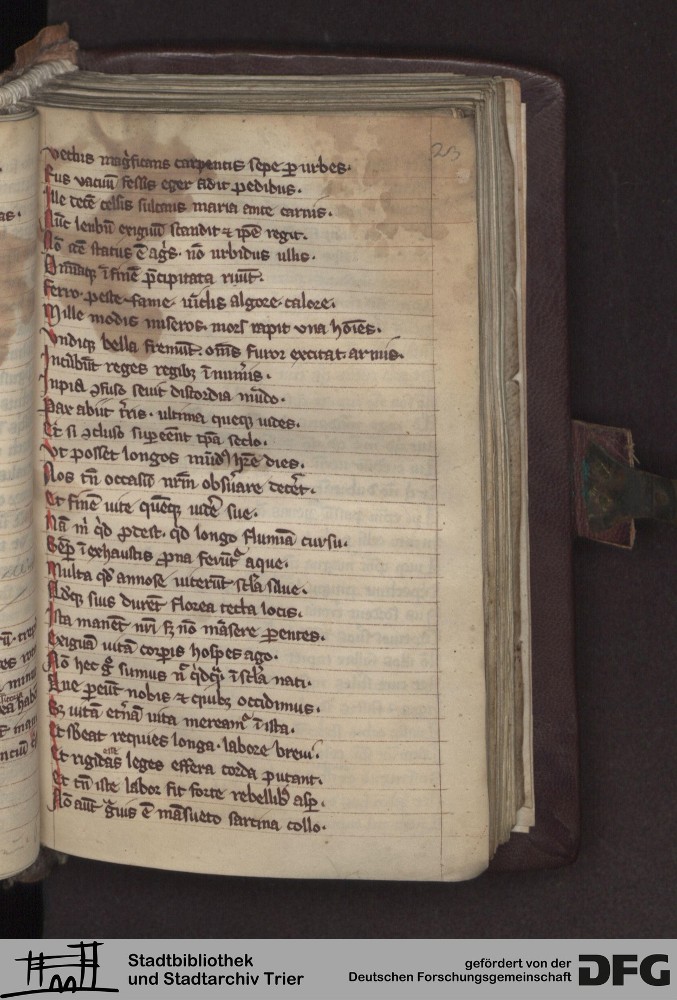 23
Vectus magͥficans carpentis sepe ꝑ urbes.
Rus vacuū fessis eger adit pedibus.
Ille decē celsis sulcans maria ante carinis.
Nūc lenbū exiguū scandit ⁊ ip̄e regit.
Nō idē status ē agͥs. nō urbibus ullis.
Om̄iaq; ī finē p̄cipitata ruūt.
Ferro. peste fame. uīclis algore calore.
Mille modis miseros. mors rapit vna hoīes.
Vndiq; bella fremūt. om̄s furor excitat. armis.
Incūbūt reges regibꝫ īnumͥis.
Inpia ꝯfuso seuit discordia mūdo.
Pax abiit t̄ris. ultima queq; uides.
Et si ꝯcluso suꝑeēnt tp̄a seclo.
Vt posset longos mūdꝰ hr̄e dies.
Nos tn̄ occasū nr̄m obs̄uare decēt.
Et finē uite quēq; uidē sue.
Nā m̄ qͥd ꝓdest. qͥd longo fluminā cursu.
Semꝑ ī exhaustis ꝓna ferūtͬ aque.
Multa qͥꝫ annose uicerūt scl̄a silue.
Adq; suis durēt florea tecta locis.
Ista manēt nr̄i sꝫ nō māsere ꝑentes.
Exiguā uitā corꝑis hospes ago.
Nō hec gͦ sumus nͣ qͥdq; ī scl̄a nati.
Que ꝑeūt nobis ⁊ quibꝫ occidimus.
Sꝫ uitā et̄nā uita mereamͬ ī ista.
Et sb̄eat requies longa. labore breui.
Et rigidas iste leges effera corda putant.
Et tn̄ iste labor fit forte rebellibꝫ asꝑ.
Nō aūt gͣuis ē māsueto sarcina collo.
Stadtbibliothek
und Stadtarchiv Trier
gefördert von der
Deutschen Forschungsgemeinschaft
DFG